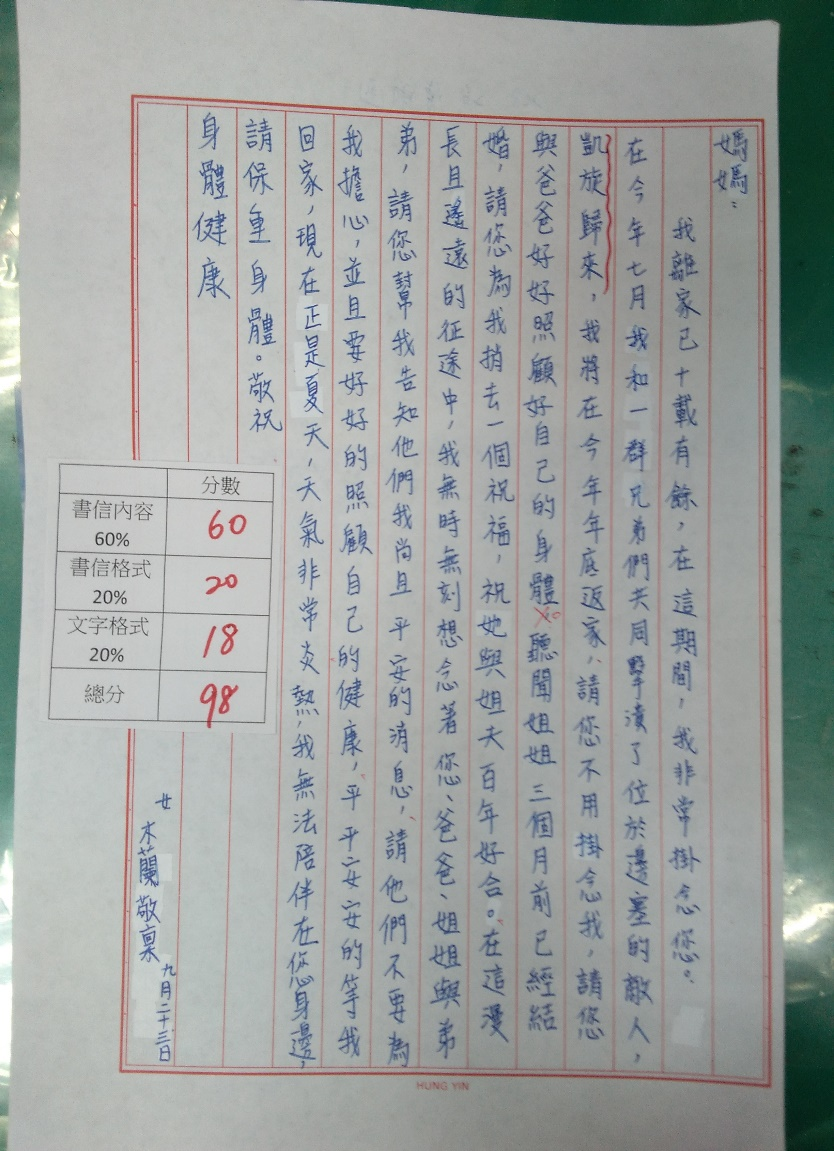 媽媽：
我離家已十載有餘，在這期間，我非常掛念您。
在今年七月我和一群兄弟們共同擊潰了位於邊塞的敵人，
凱旋歸來，我將在今年年底返家，請您不用掛念我，請您
與爸爸好好照顧好自己的身體。聽聞姐姐三個月前已經結
婚，請您為我捎去一個祝福，祝她與姐夫百年好合。在這漫
長且遙遠的征途中，我無時無刻想念著您、爸爸、姐姐與弟
弟，請您幫我告知他們我尚且平安的消息，請他們不要為
我擔心，並且要好好的照顧自己的健康，平平安安的等我
回家，現在正是夏天，天氣非常炎熱，我無法陪伴在您身邊，
請保重身體。敬祝
身體健康
女 木蘭 敬稟 九月二十三日
分數
書信內容 60% 60
書信格式 20% 20
文字格式 20% 18
總分 98
HUNG YIN